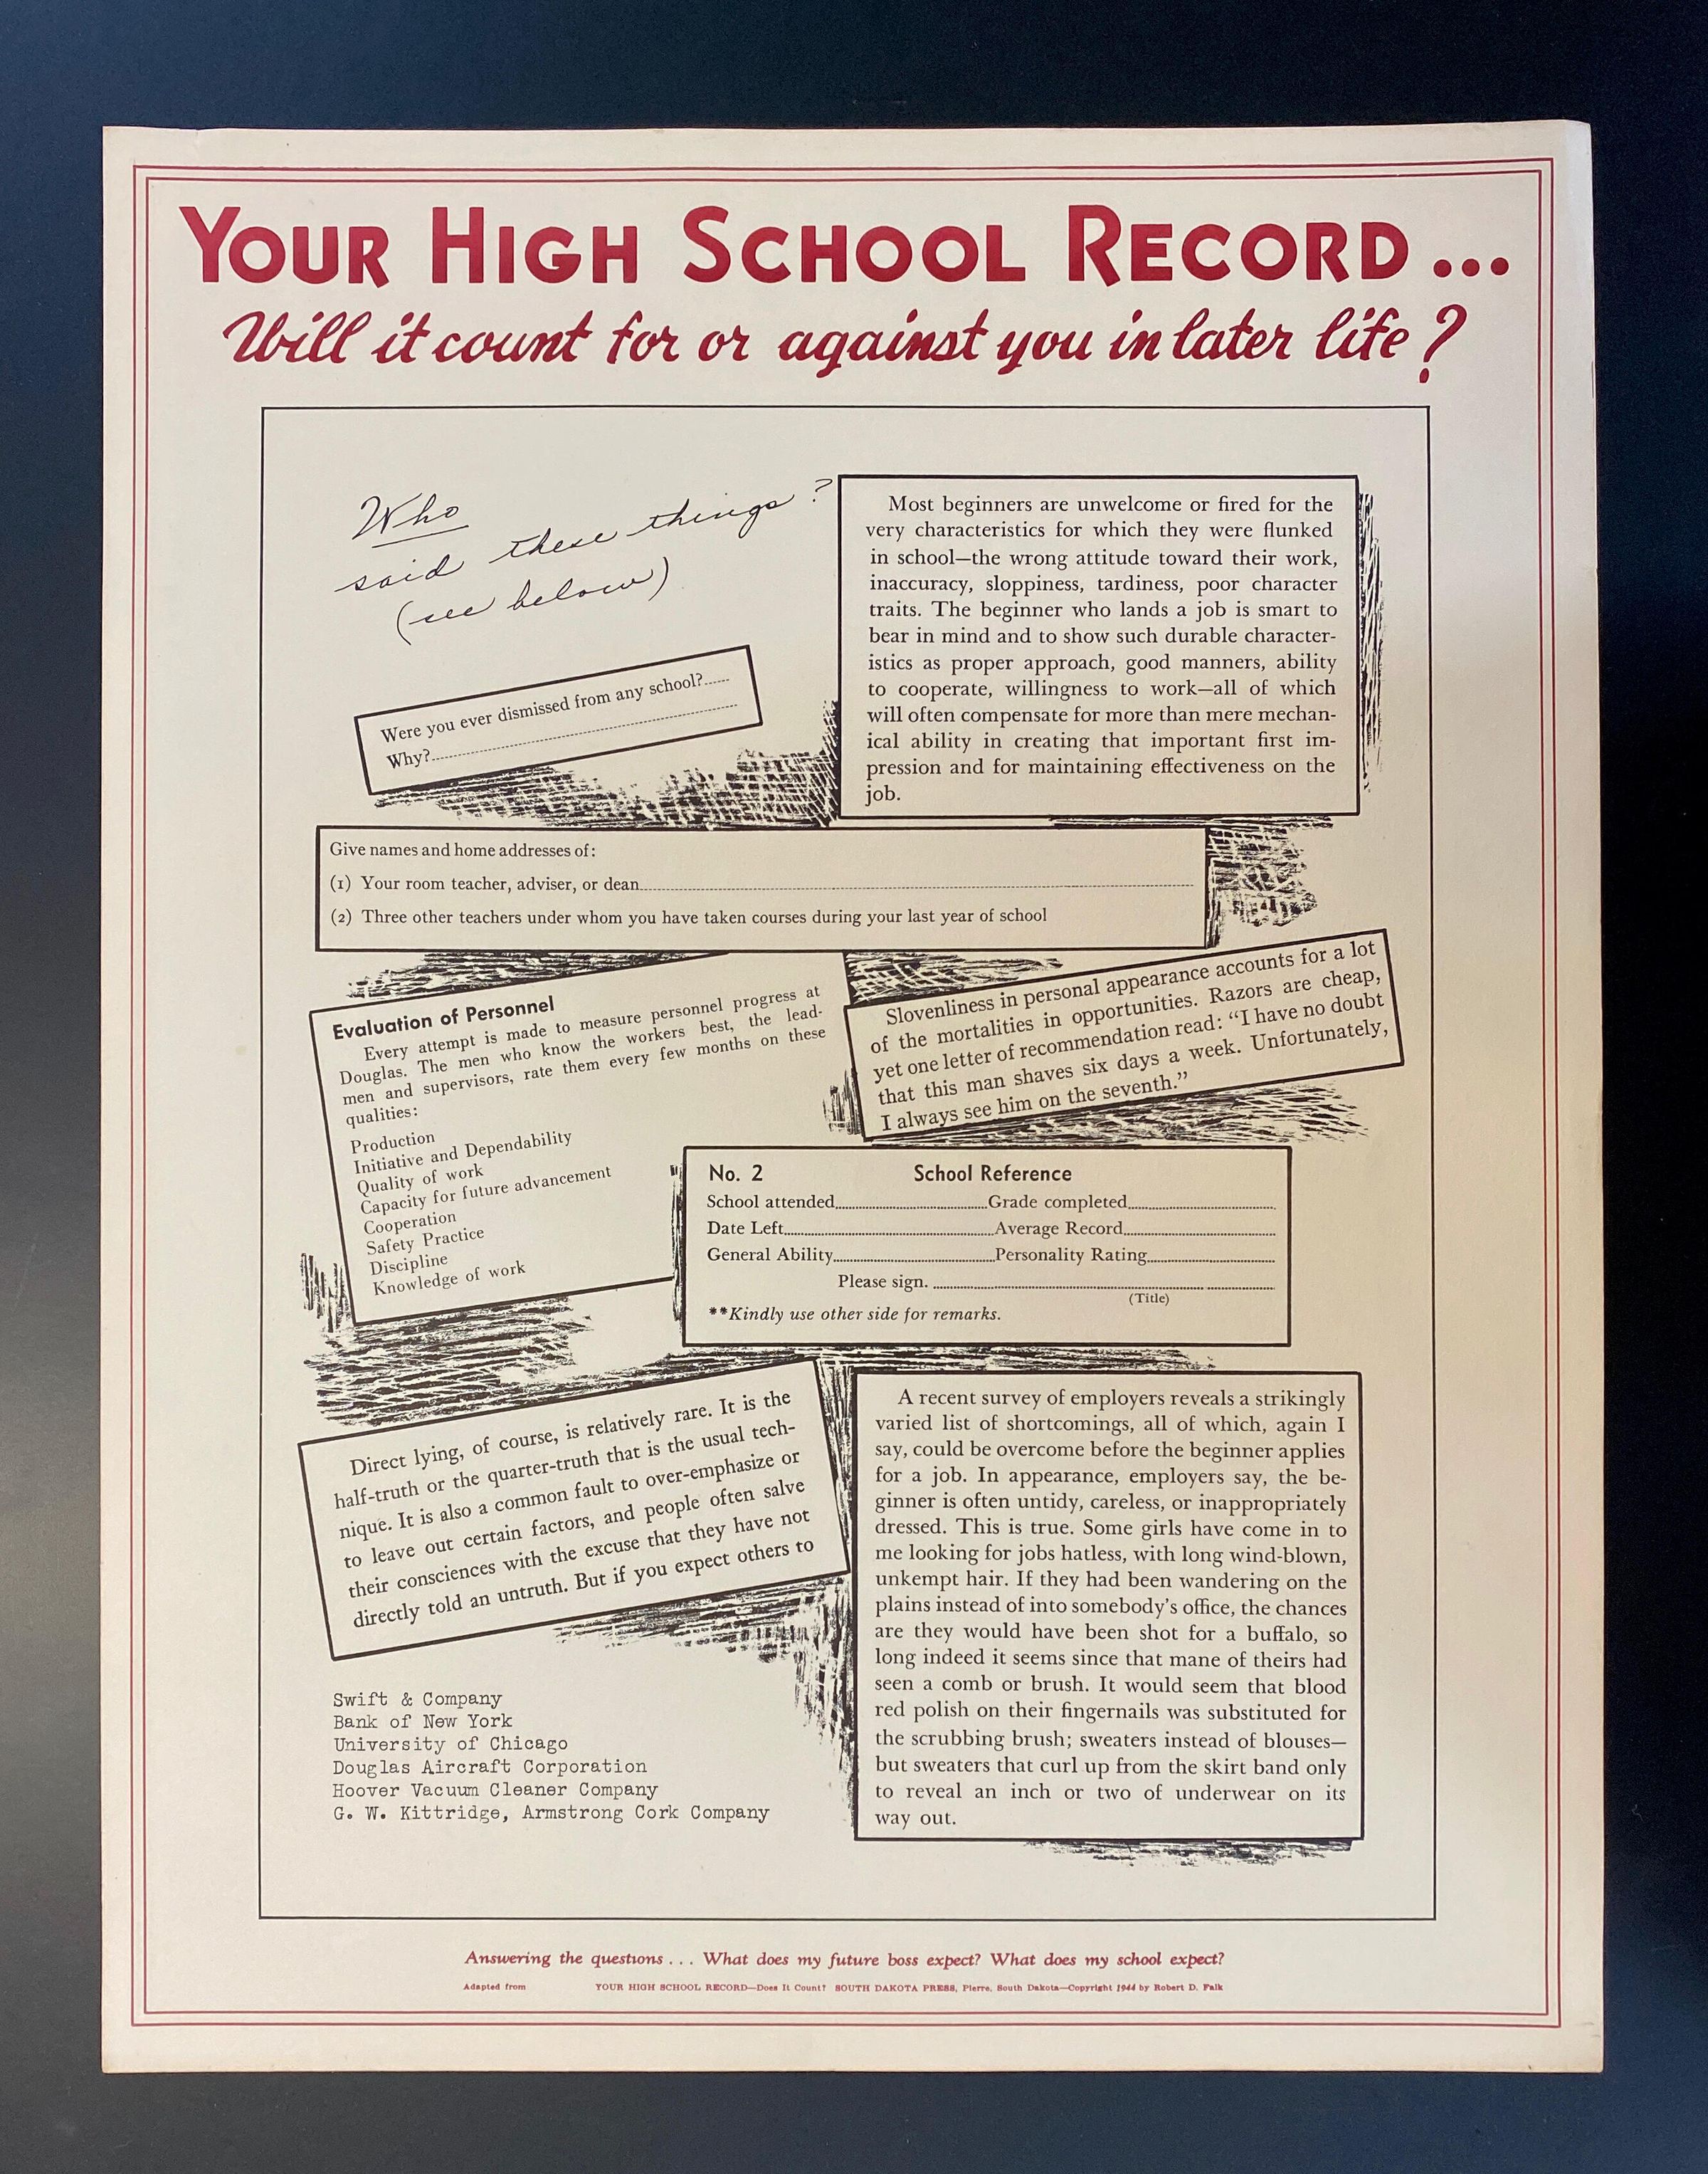 YOUR HIGH SCHOOL RECORD...
Will it count for or against you in later life?
Who
said these things?
(see below)
Most beginners are unwelcome or fired for the
very characteristics for which they were flunked
in school—the wrong attitude toward their work,
inaccuracy, sloppiness, tardiness, poor character
traits. The beginner who lands a job is smart to
bear in mind and to show such durable character-
istics as proper approach, good manners, ability
to cooperate, willingness to work—all of which
will often compensate for more than mere mechan-
ical ability in creating that important first im-
pression and for maintaining effectiveness on the
job.
Were you ever dismissed from any school?......
Why?..............................
Give names and home addresses of:
(1) Your room teacher, adviser, or dean..............................
(2) Three other teachers under whom you have taken courses during your last year of school
Evaluation of Personnel
Every attempt is made to measure personnel progress at
Douglas. The men who know the workers best, the lead-
men and supervisors, rate them every few months on these
qualities:
Production
Initiative and Dependability
Quality of work
Capacity for future advancement
Cooperation
Safety Practice
Discipline
Knowledge of work
Slovenliness in personal appearance accounts for a lot
of the mortalities in opportunities. Razors are cheap,
yet one letter of recommendation read: “I have no doubt
that this man shaves six days a week. Unfortunately,
I always see him on the seventh.”
No. 2 School Reference
School attended....................Grade completed....................
Date Left....................Average Record....................
General Ability....................Personality Rating....................
Please sign. ..............................
(Title)
**Kindly use other side for remarks.
Direct lying, of course, is relatively rare. It is the
half-truth or the quarter-truth that is the usual tech-
nique. It is also a common fault to over-emphasize or
to leave out certain factors, and people often salve
their consciences with the excuse that they have not
directly told an untruth. But if you expect others to
A recent survey of employers reveals a strikingly
varied list of shortcomings, all of which, again I
say, could be overcome before the beginner applies
for a job. In appearance, employers say, the be-
ginner is often untidy, careless, or inappropriately
dressed. This is true. Some girls have come in to
me looking for jobs hatless, with long wind-blown,
unkempt hair. If they had been wandering on the
plains instead of into somebody’s office, the chances
are they would have been shot for a buffalo, so
long indeed it seems since that mane of theirs had
seen a comb or brush. It would seem that blood
red polish on their fingernails was substituted for
the scrubbing brush; sweaters instead of blouses—
but sweaters that curl up from the skirt band only
to reveal an inch or two of underwear on its
way out.
Swift & Company
Bank of New York
University of Chicago
Douglas Aircraft Corporation
Hoover Vacuum Cleaner Company
G. W. Kittridge, Armstrong Cork Company
Answering the questions... What does my future boss expect? What does my school expect?
Adapted from YOUR HIGH SCHOOL RECORD—Does It Count? SOUTH DAKOTA PRESS, Pierre, South Dakota—Copyright 1944 by Robert D. Falk